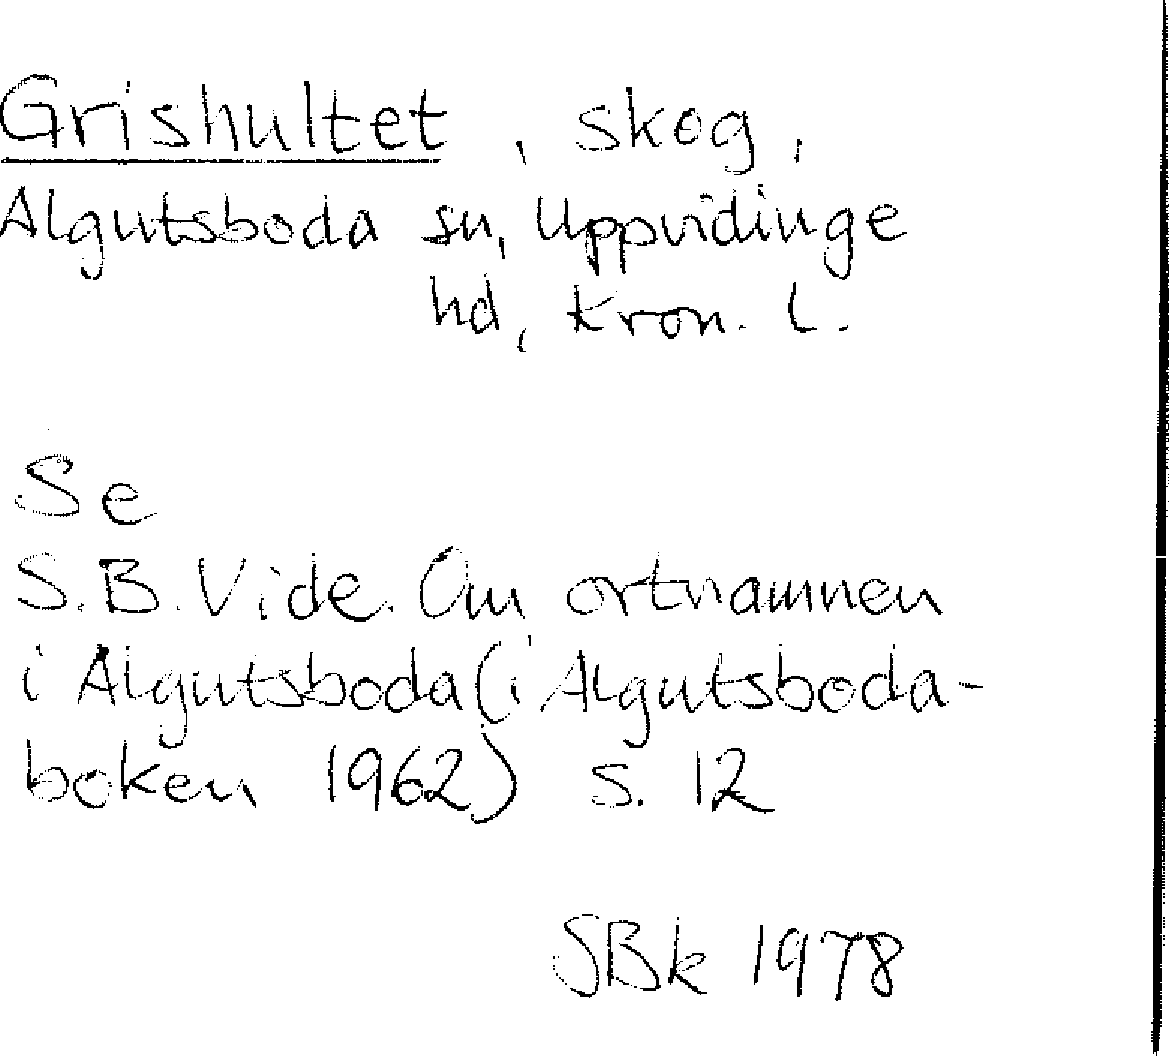 Grishultet, skog,
Algutsboda sn, Uppvidinge
hd, Kron. l.
Se
S.B. Vide. Om ortnamnen
i Algutsboda (i Algutsboda-
boken 1962) s. 12
SBk 1978